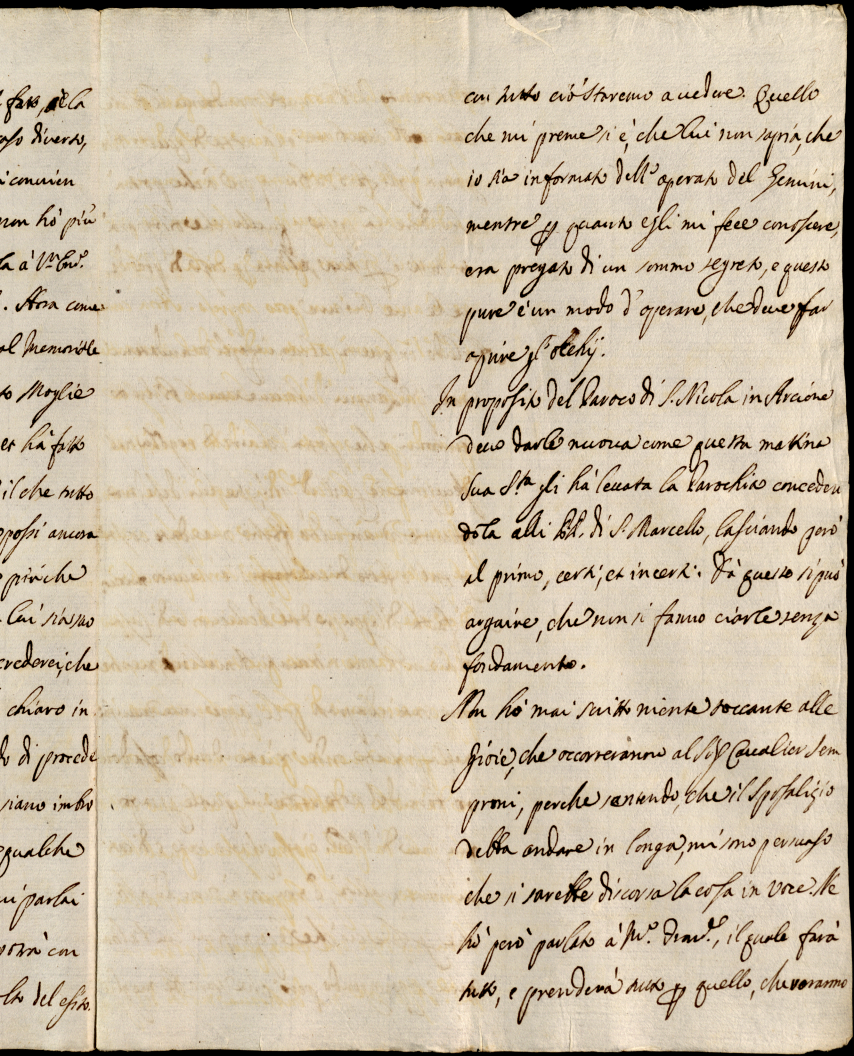 fatto, e la
oso diverso,
convien
non hò più
la à
Hora come
al Memoriale
to Moglie
er hà fatto
il che tutto
opposi ancora
piriche
Lui siasno
crederei, che
chiaro in
do di procede
siano imbro
qualche
parlai
con
del esito.
con tutto ciò staremo a vedere. Quello
che mi preme si è, che lui non sapia, che
io sia informato dell'operato del Gemini,
mentre p quanto egli mi fece conoscere,
era pregato di un sommo segreto, e questo
pure è un modo d'operare, che deve far
aprire gl'occhij.
In proposito del Paroco di S. Nicola in Arcione
devo darle nuova come questa matina
Sua S.ta gli hà levata la Parochia conceden
dola alli PP. di S. Marcello, lasciando però
al primo, certi, et incerti. Dà questo si può
arguire, che non si fanno ciarle senza
fondamento.
Non hò mai scritto niente toccante alle
Gioie, che occorreranno al Sig Cavalier Sem
proni, perche sentendo, che il Sposalizio
debba andare in longa, mi sono persuaso
che si sarebbe discorsa la cosa in voce. Ne
hò però parlato à M.r , il quale farà
tutto, e prenderà tutto p quello, che voranno